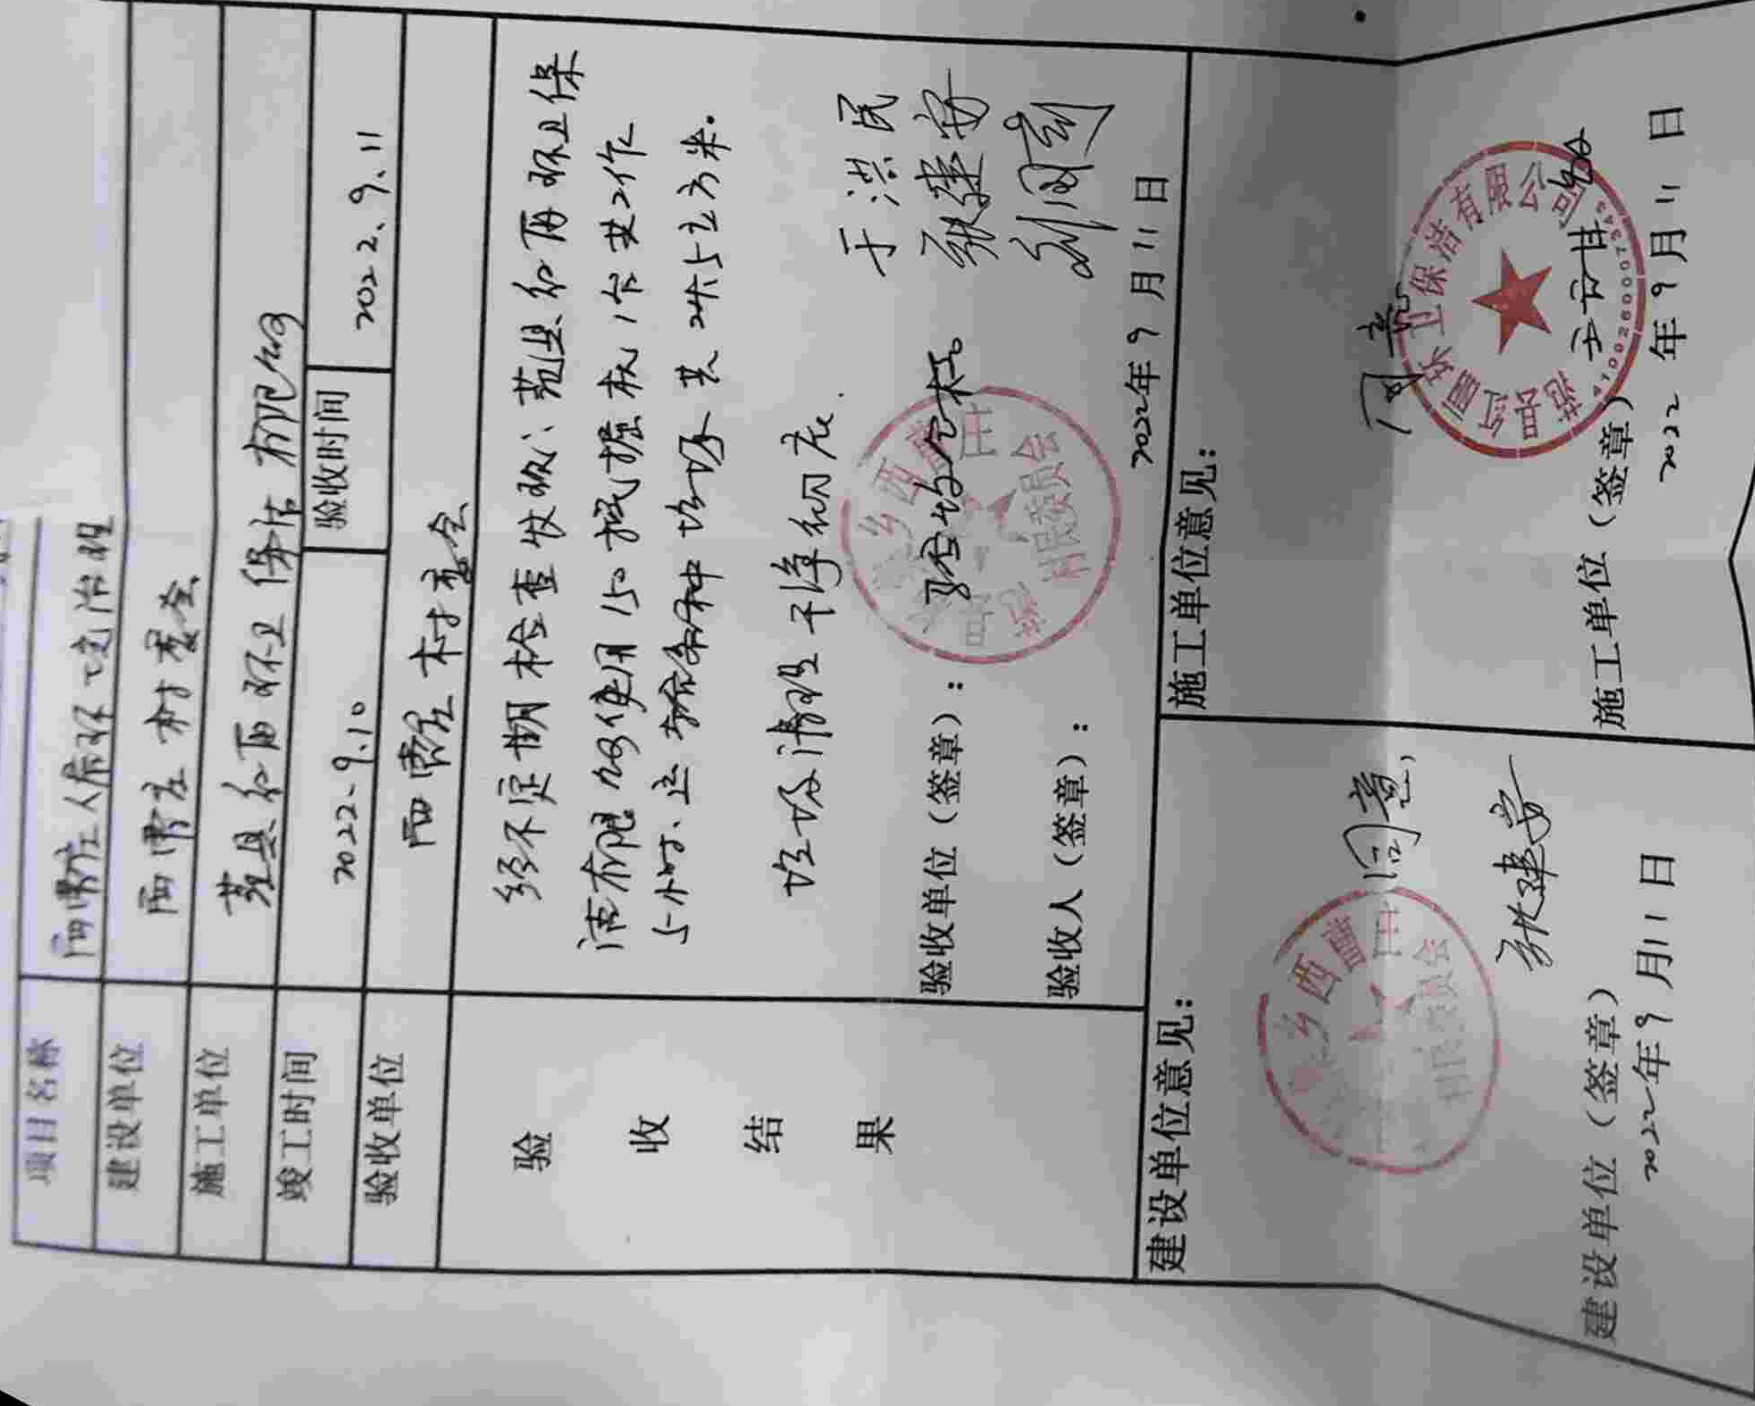 项目名称 西曹庄人居环境治理
建设单位 西曹庄村委会
施工单位 范县红雨环卫保洁有限公司
竣工时间 2022.9.10 验收时间 2022.9.11
验收单位 西曹庄村委会
验收结果
经不定期检查收取：范县红雨环卫保
洁有限公司使用150挖掘机1台共工作
5小时、立方米。
垃圾清理干净彻底.
于洪民
张建安
验收单位（签章）：
验收人（签章）：
2022年9月11日
建设单位意见：
同意
张建安
建设单位（签章）
2022年9月11日
施工单位意见：
同意
施工单位（签章）
2022年9月11日
乡西曹庄
村民委员会
范县红雨环卫保洁有限公司